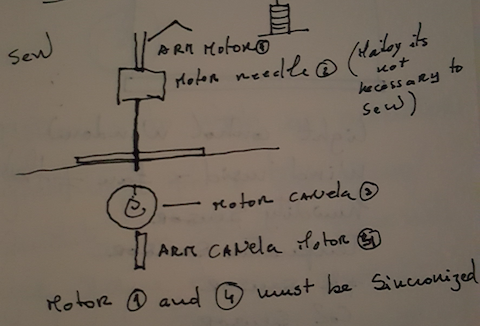 sew
ARM MOTOR ①
MOTOR needle ② (Maiby its
not
necessary to
sew)
MOTOR CANELA ③
ARM CANELA MOTOR
MOTOR ① and ④ must be sincronized